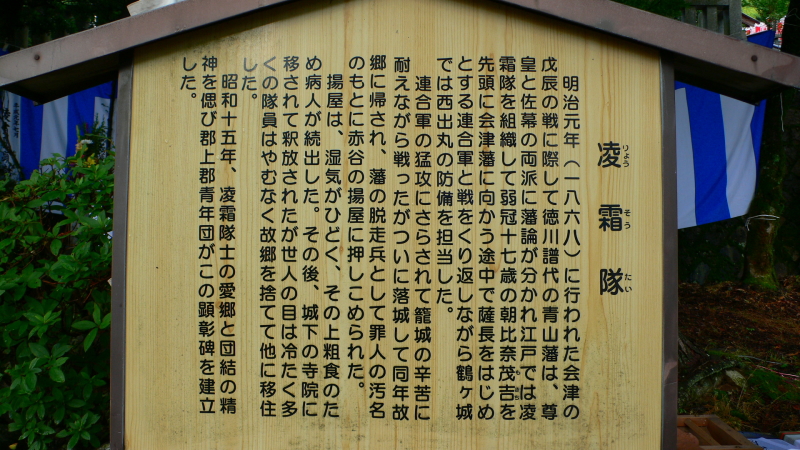 凌霜隊
りょうそうたい
明治元年（一八六八）に行われた会津の
戊辰の戦に際して徳川譜代の青山藩は、尊
皇と佐幕の両派に藩論が分かれ江戸では凌
霜隊を組織して弱冠十七歳の朝比奈茂吉を
先頭に会津藩に向かう途中で薩長をはじめ
とする連合軍と戦をくり返しながら鶴ヶ城
では西出丸の防備を担当した。
連合軍の猛攻にさらされて籠城の辛苦に
耐えながら戦ったがついに落城して同年故
郷に帰され、藩の脱走兵として罪人の汚名
のもとに赤谷の揚屋に押しこめられた。
揚屋は、湿気がひどく、その上粗食のた
め病人が続出した。その後、城下の寺院に
移されて釈放されたが世人の目は冷たく多
くの隊員はやむなく故郷を捨てて他に移住
した。
昭和十五年、凌霜隊士の愛郷と団結の精
神を偲び郡上郡青年団がこの顕彰碑を建立
した。